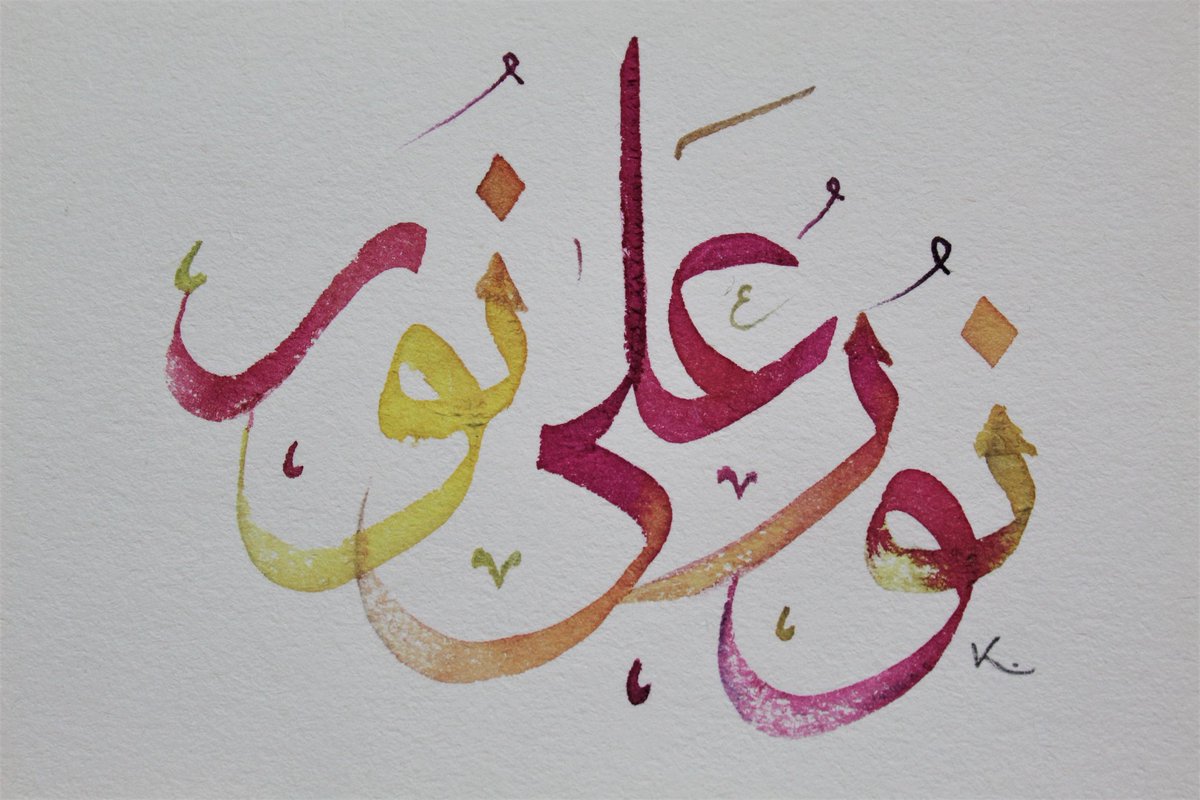 نُورٌ عَلَى نُور
K.